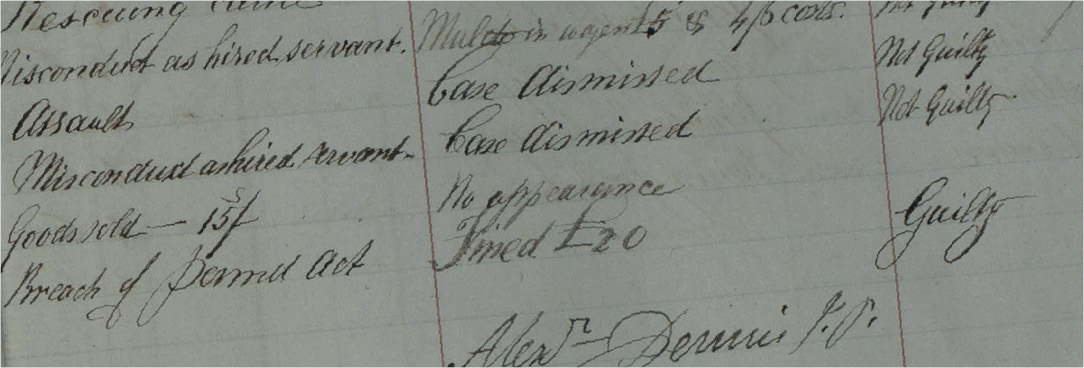 Rescuing cattle
Misconduct as hired servant. Mulct in wages £5 & 4/6 costs. Not Guilty
Assault Case dismissed Not Guilty
Misconduct as hired servant. Case dismissed Not Guilty
Goods sold — 15/ No appearance
Breach of Permit Act Fined £20 Guilty
Alexr Dennis J.P.